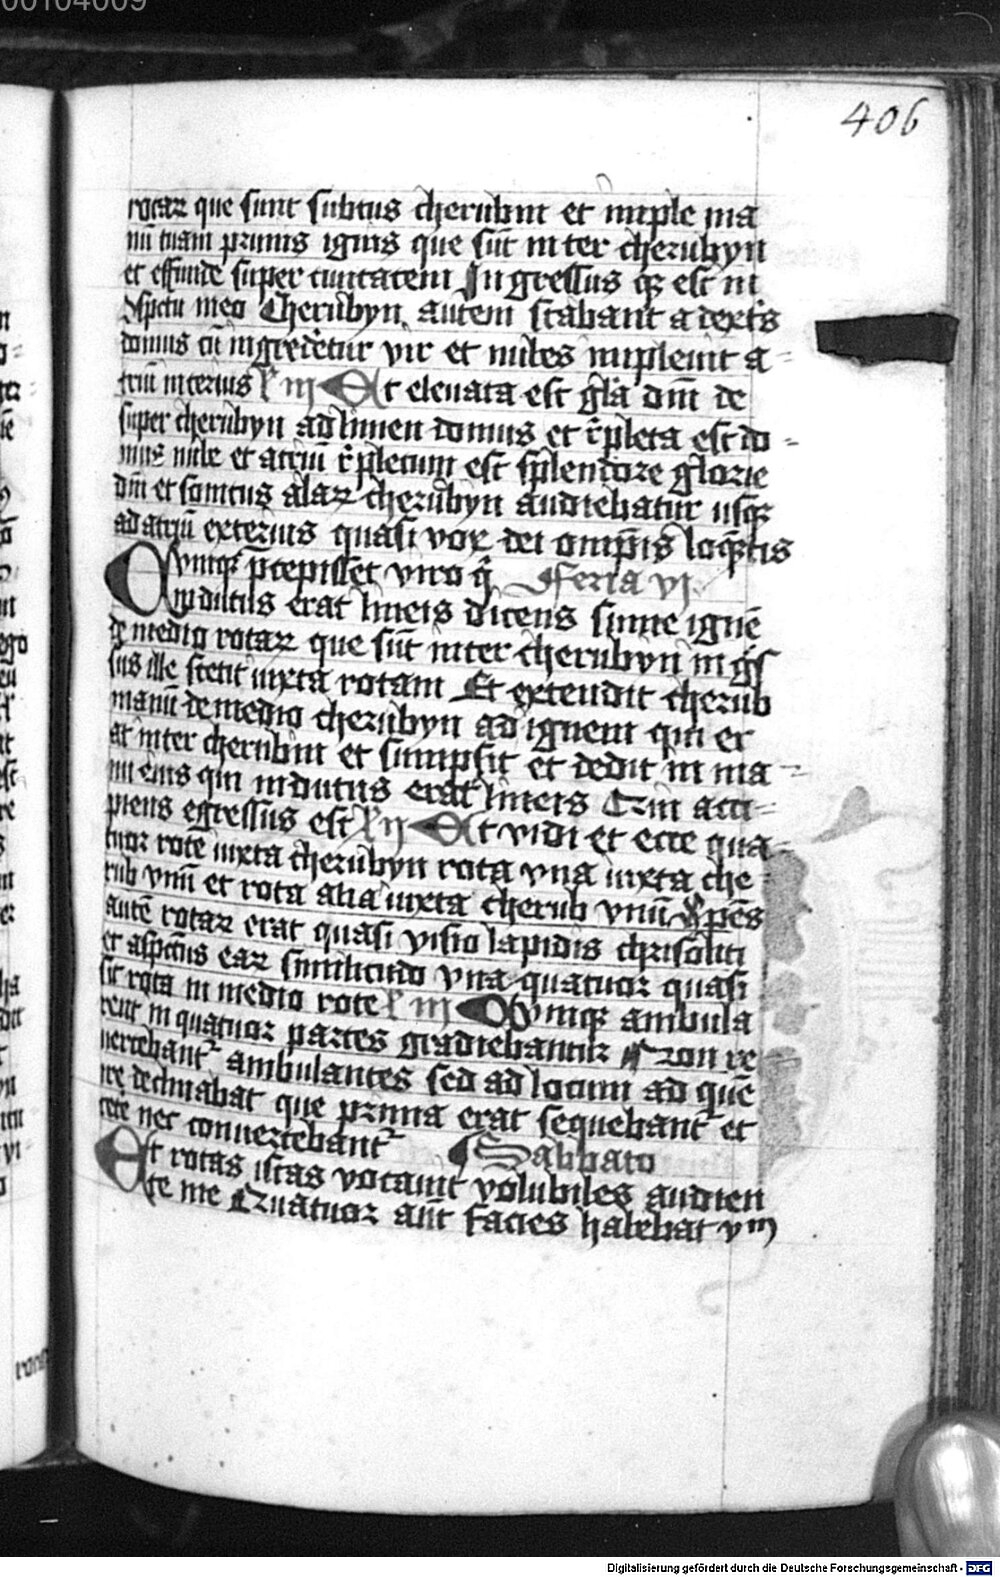 00104009
406
rotaꝝ que sunt subtus cherubin et imple ma
nū tuam prunis ignis que sūt inter cherubyn
et effunde super ciuitatem Ingressus qꝫ est in
ɔspectu meo Cherubyn autem stabant a dext's
domus cū ingrederetur vir et nubes impleuit a-
triū interius ℟ iij Et eleuata est gl̄a dn̄i de
super cherubyn ad limen domus et r̄pleta est do-
mus nube et atriū r̄pletum est splendore glorie
dn̄i et sonitus alaꝝ cherubyn audiebatur usqꝫ
ad atriū exterius quasi vox dei omp̄tis loq̄ntis
Cumqꝫ p̄cepisset viro q̄ Feria vj
indutus erat lineis dicens sume ignē
de medio rotaꝝ que sūt inter cherubyn ingres
sus ille stetit iuxta rotam Et extendit cherub
manū de medio cherubyn ad ignem qui er
at inter cherubin et sumpsit et dedit in ma-
nu eius qui indutus erat lineis Qui acci-
piens egressus est ℟ ij Et vidi et ecce qua-
tuor rote iuxta cherubyn rota vna iuxta che-
rub vnū et rota alia iuxta cherub vnū Spēs
autē rotaꝝ erat quasi visio lapidis chrisoliti
et aspectus eaꝝ similitudo vna quatuor quasi
sit rota in medio rote ℟ iij Cumqꝫ ambula
rent in quatuor partes gradiebantur Et non re
uertebant' ambulantes sed ad locum ad quē
ire declinabat que prima erat sequebant' et
cete nec conuertebant' Sabbato
Et rotas istas vocauit volubiles audien
te me Quatuor aūt facies habebat vnū
Digitalisierung gefördert durch die Deutsche Forschungsgemeinschaft - DFG